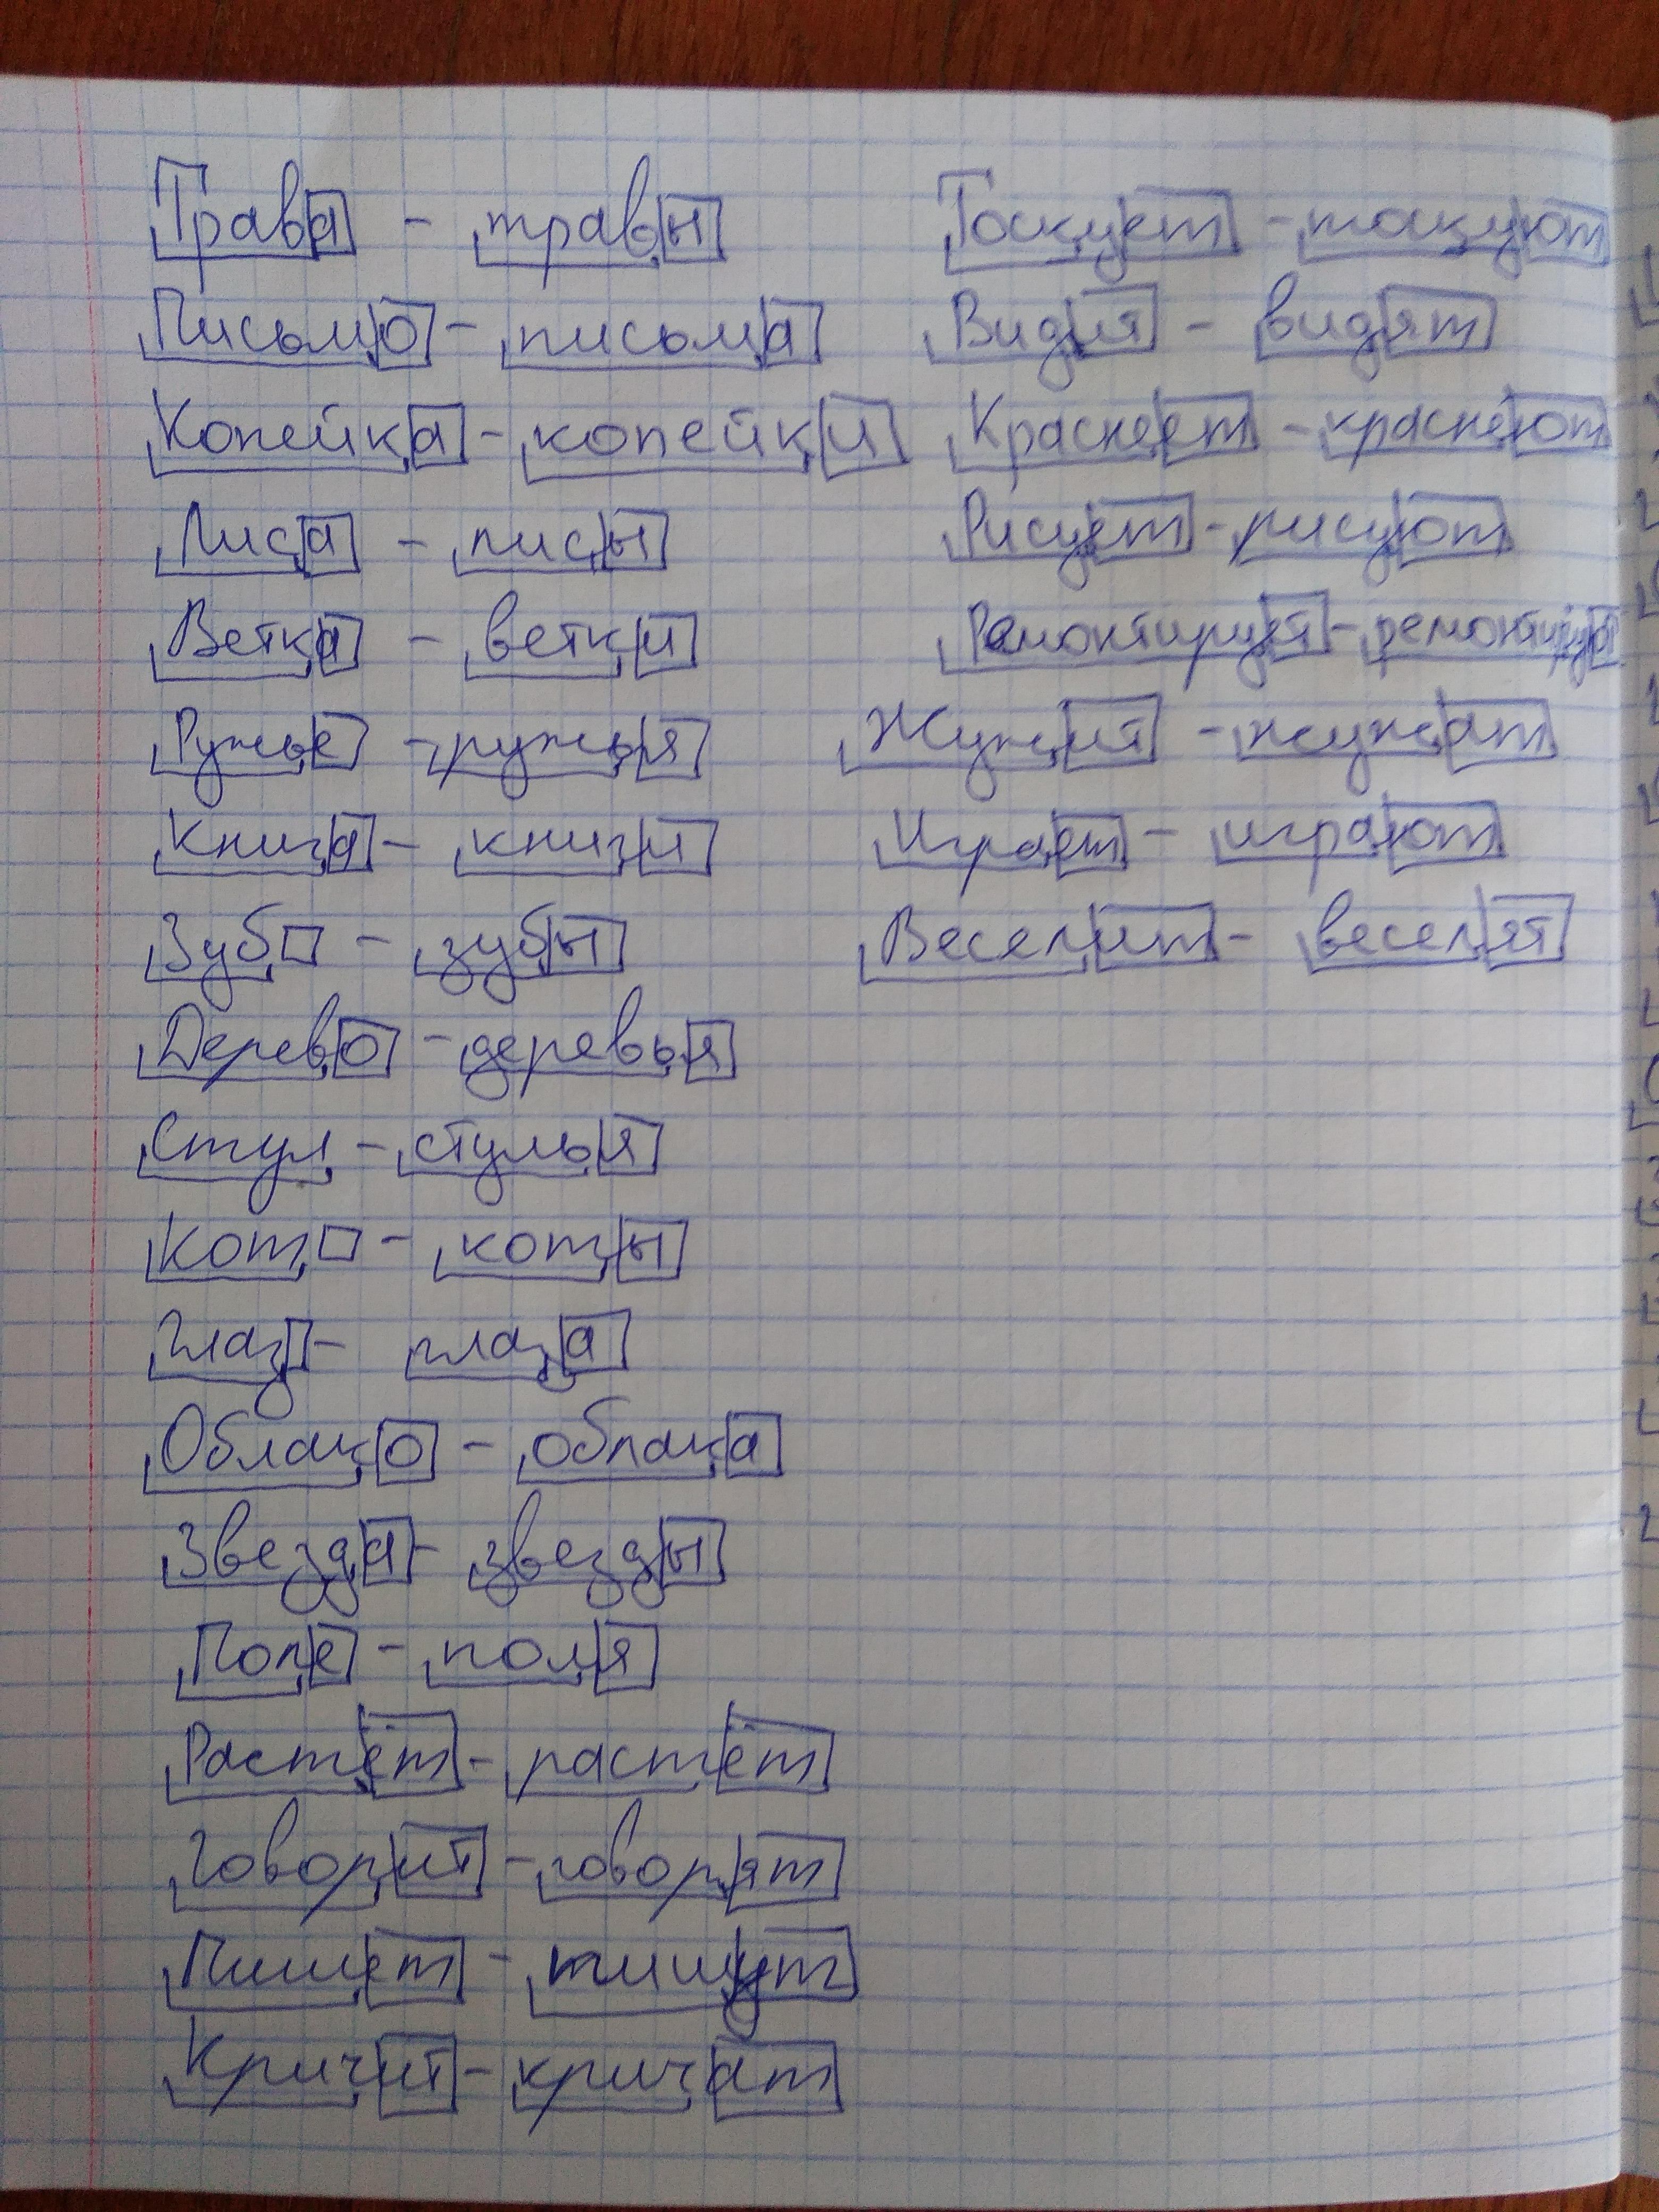 Трава - травы
Письмо - письма
Копейка - копейки
Лиса - лисы
Ветка - ветки
Ружье - ружья
Книга - книги
Зуб - зубы
Дерево - деревья
Стул - стулья
Кот - коты
Глаз - глаза
Облако - облака
Звезда - звезды
Поле - поля
Растёт - растёт
Говорит - говорят
Пишет - пишут
Кричит - кричат
Тоскует - тоскуют
Видит - видят
Краснеет - краснеют
Рисует - рисуют
Ремонтирует -
Жужжит - жужжат
Играет - играют
Веселит - веселят